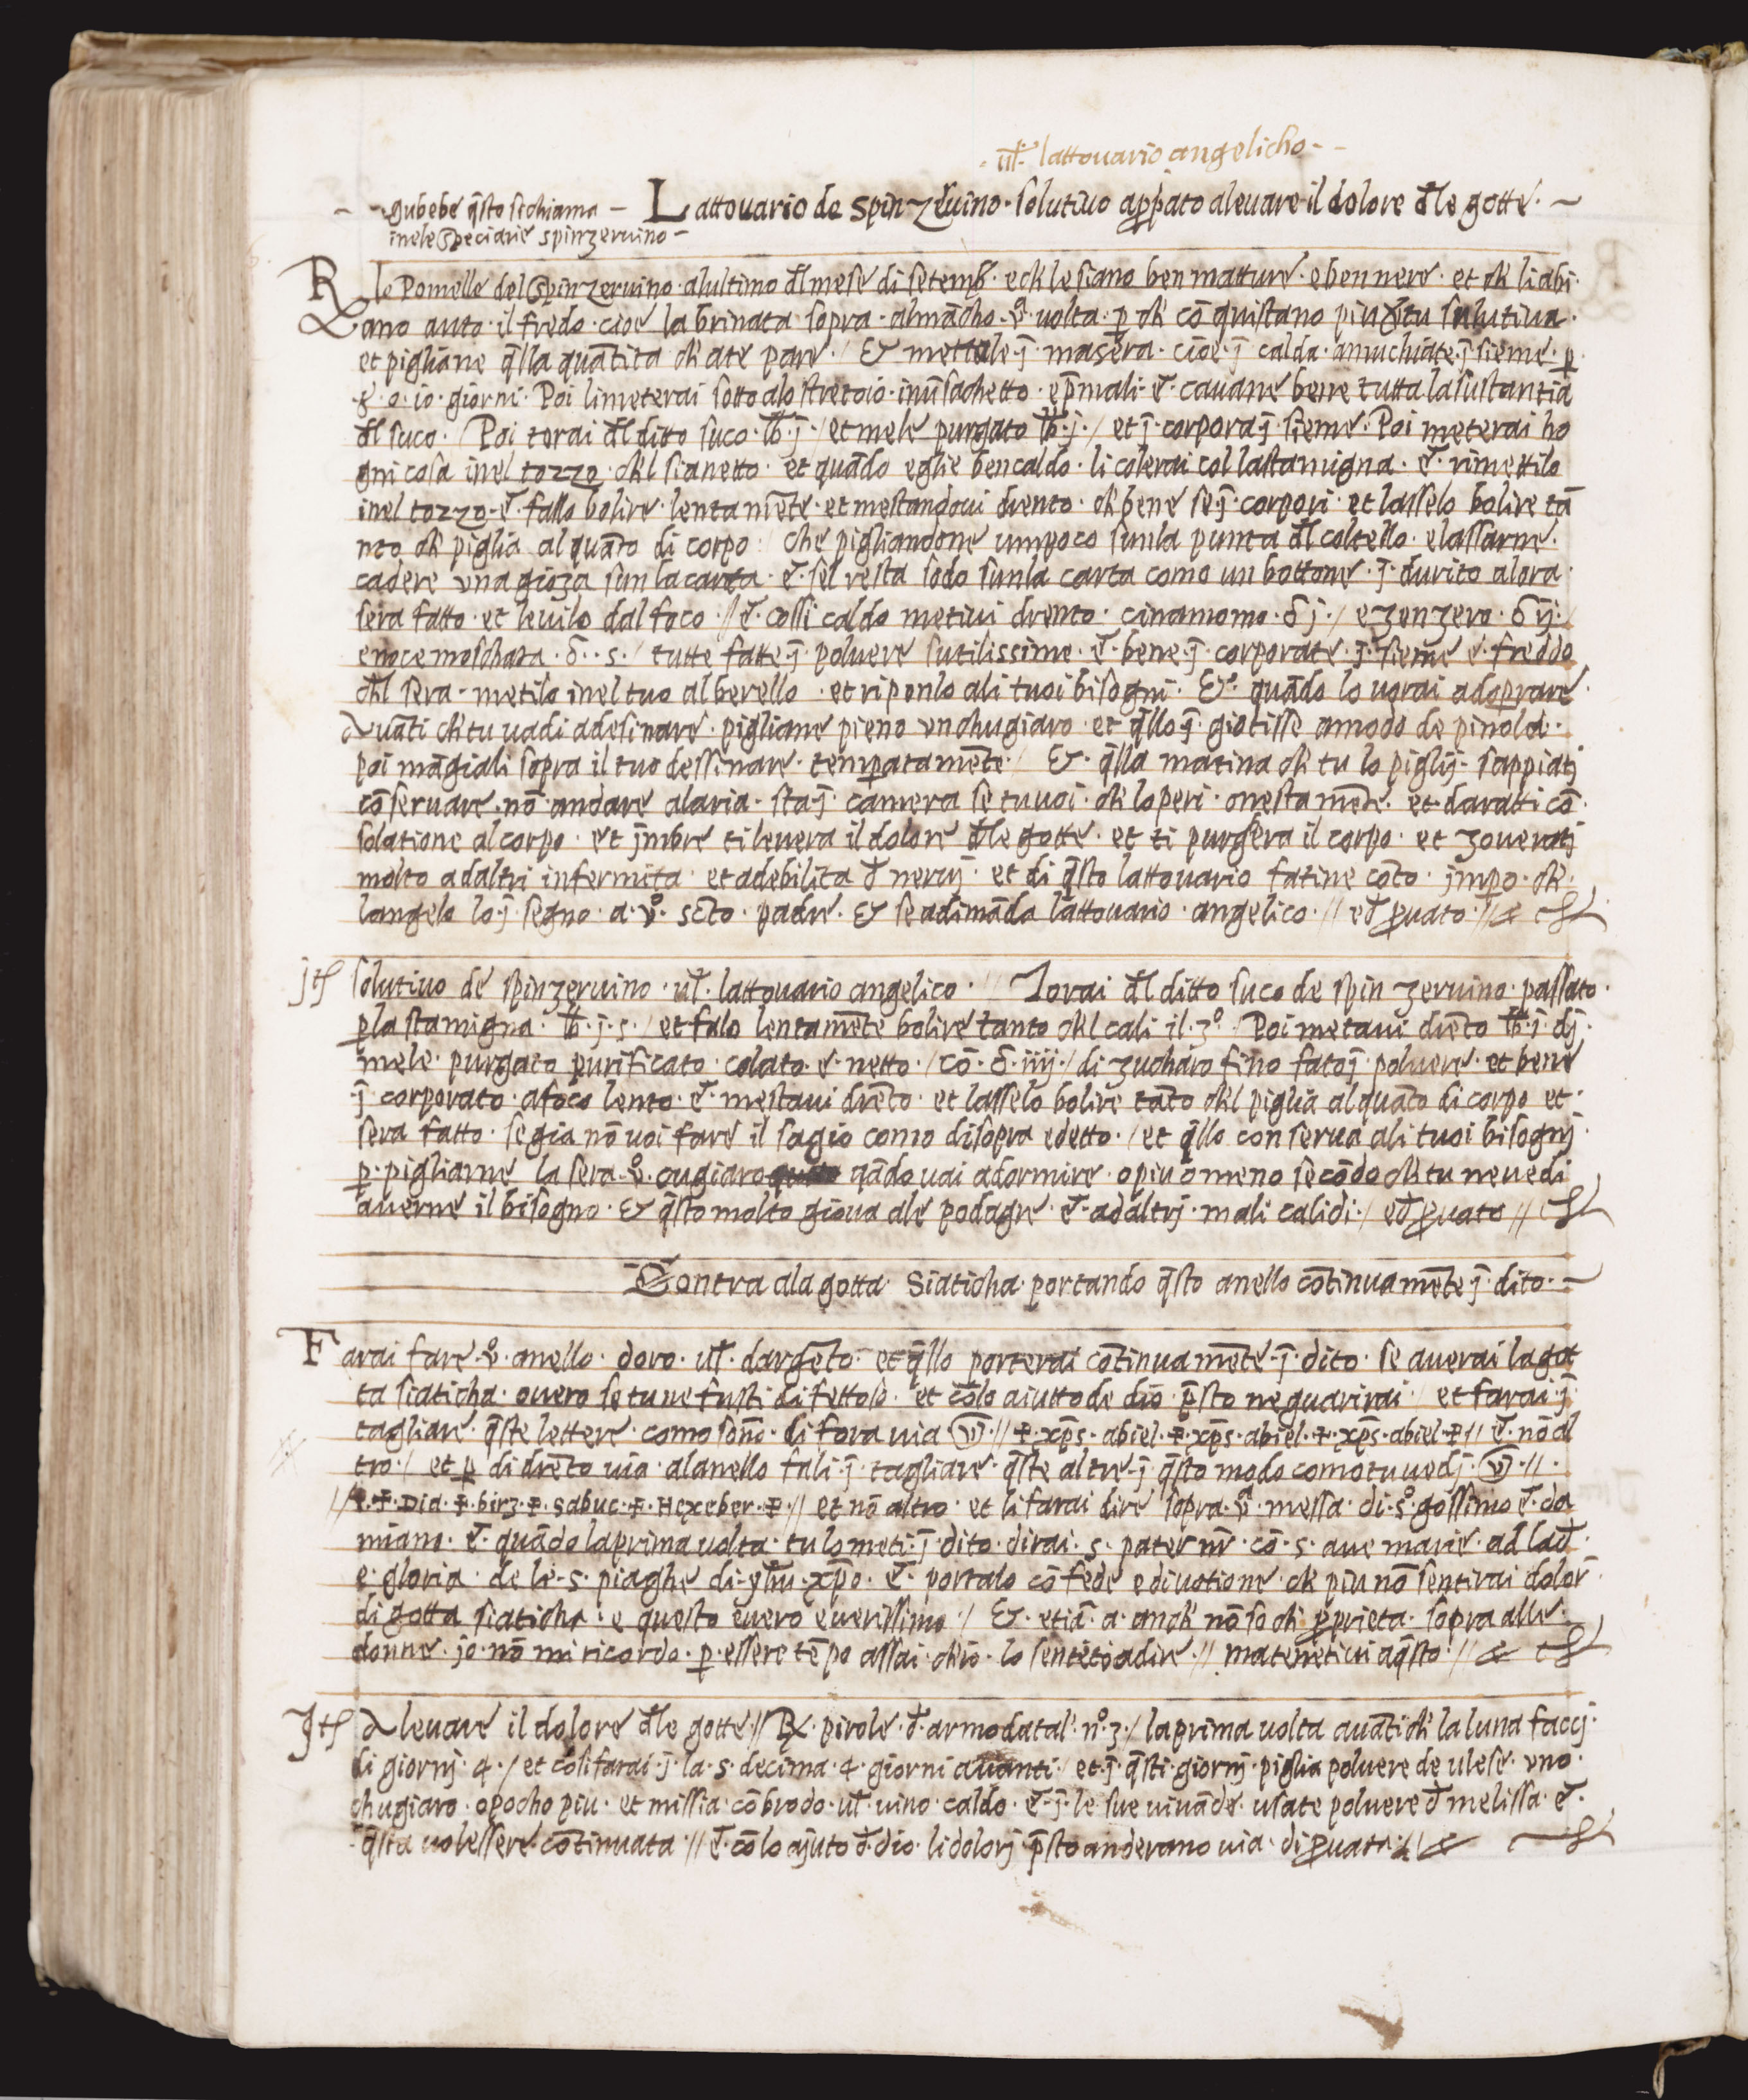 ·uł· lattouario angelicho -
- gubebe q̄sto si chiama -
inele speciarie spinzeruino -
Lattouario de spinzeruino · solutiuo app̄ato aleuare il dolore d̄le gotte · ~
R le Pomelle del spinzeruino · alultimo d̄l mese di setemb̄ · e ch̄ le siano ben matture · e ben nere · et ch̄ li abi·
ano auto · il fredo · cioe la brinata sopra · almācho · v̊ · uolta · p̱ ch̄ cō quistano piu solutiua ·
et pigliane q̄lla quātita ch̄ ate pare · / & mettele · j̄ · masera · cioe · j̄ · calda · amuchiate · j̄ sieme · p̱ ·
8 · o · io · giorni · Poi limeterai sotto alo stretoio · inūsachetto · e p̄mali · e · cauane bene tutta la sustantia
d̄l suco · / Poi torai d̄l ditto suco · lb̄ · j · / et mele purgato lb̄ · j · / et j̄ · corpora j̄ · sieme · Poi meterai ho
gni cosa inel tozzo · ch̄l sia netto · et quādo eglie ben caldo · li colerai col la stamigna · e · rimettilo
inel tozzo · e · fallo bolire · lentamēte · et mestandoui drento · ch̄ bene se j̄ · corpori · et lasselo bolire tā
nto ch̄ piglia alquāto di corpo · / che pigliandone umpoco sun la punta d̄l coltello · e lassarne ·
cadere vna gioza sun la carta · e · sel resta sodo sunla carta como un bottone · j̄ · durito alora ·
sera fatto · et leuilo dal foco · // e · cossi caldo metiui drento · cinamomo · ō j · / e zenzero · ō ij · /
e noce moschata · ō · s · / tutte fatte · j̄ · poluere sutilissime · e · bene · j̄ · corporate · j̄ · sieme e · freddo
ch̄l sera · metilo inel tuo alberello · et riponlo ali tuoi bisogni · & · quādo lo uorai adoprare ·
Auāti ch̄ tu uadi adesinare · pigliane pieno vn chugiaro · et q̄llo j̄ · giotisse amodo de pinola ·
poi māgiali sopra il tuo dessinare · temp̱atamēte · / & · q̄lla matina ch̄ tu lo piglij · sappiatj
cōseruare · nō · andare alaria · sta j̄ · camera se tu uoi · ch̄ loperi · onestamēte · et daratti cō·
solatione al corpo · et jmbre ti leuera il dolore d̄le gotte · et ti purgera il corpo · et zoueratj
molto ad altri infermita · et adebilita d̄ neruj · et di q̄sto lattouario fatine cōto · jmpo · ch̄ ·
langelo lo · j̄ · segno · a · v̊ · scto · padre · & se adimāda lattouario · angelico · // e p̱uato · //
jtē solutiuo de spinzeruino · uł · lattouario angelico · // Torai d̄l ditto suco de spin zeruino · passato ·
p̱ la stamigna · lb̄ · j · s · / et falo lentamēte bolire tanto ch̄l cali il · 3º · / Poi metaui drēto lb̄ · j · dj ·
mele · purgato purificato · colato · e · netto · / cō · ō · iiij · / di zucharo fino fato j̄ · poluere · et bene
j̄ · corporato · afoco lento · e · mestaui drēto · et lasselo bolire tāto ch̄l piglia alquāto di corpo et ·
sera fatto · se gia nō uoi fare il sagio como disopra e detto · / et q̄llo conserua ali tuoi bisognj ·
p̱ · pigliarne la sera · v̊ · cugiaro qādo uai adormire · o piu o meno secōdo ch̄ tu ne uedi
auerne il bisogno · & q̄sto molto gioua ale podagre · e · ad altrj · mali calidi · / e p̱uato //
Contra ala gotta Siaticha · portando q̄sto anello cōtinuamēte j̄ · dito · ~
Farai fare · v̊ · anello · doro · uł · dargēto · et q̄llo porterai cōtinuamēte · j̄ · dito · se auerai la got
ta siaticha · ouero se tu ne fusti difettoso · et cōlo aiutto de dio · p̄sto ne guarirai · / et farai · j̄
tagliare · q̄ste lettere · como sono · di fora uia // ✝ · xp̄s · abiel · ✝ · xp̄s · abiel · ✝ · xp̄s · abiel · ✝ // e · nō al
tro · / et p̱ didrēto uia · alanello fali · j̄ · tagliare · q̄ste altre · j̄ q̄sto modo como tu uedj · // ·
// ✝ · Dia · ✝ · birz · ✝ · sabuc · ✝ · Hexeber · ✝ · // et nō altro · et li farai dire sopra · v̊ · messa · di · s̊ · gossimo e · da
miano · e · quādo la prima uolta · tu lo meti · j̄ · dito · dirai · s · pater nr̄ · cō · s · aue marie · ad lad̄ ·
e · gloria · de le · s · piaghe di · yħu · xp̄o · e · portalo cō fede e diuotione · ch̄ piu nō sentirai dolor̄ ·
di gotta siaticha · e questo euero e uerissimo · / & · etiā · a · anch̄ nō so ch̄ p̱prieta · sopra alle ·
donne · jo · nō mi ricordo · p̱ · essere tēpo assai · ch̄ io · lo senteti adire · // mateneticui a q̄sto · //
Jtē Aleuare il dolore d̄le gotte // Rx · pirole · d̄ · armodatal · nº · 3 · / la prima uolta auāti ch̄ la luna faccj ·
di giornj · 4 · / et cosi farai · j̄ · la · s · decima · 4 · giorni auanti · / et · j̄ · q̄sti · giornj · piglia poluere de ulese · vno ·
chugiaro · o pocho piu · et missia · cō brodo · uł · uino · caldo · e · j̄ · le sue uiuāde · usate poluere d̄ melissa · e ·
q̄sta uol essere · cōtinuata // e · cō lo ajuto d̄ · dio · li dolorj · p̄sto anderano uia · di p̱uata · //